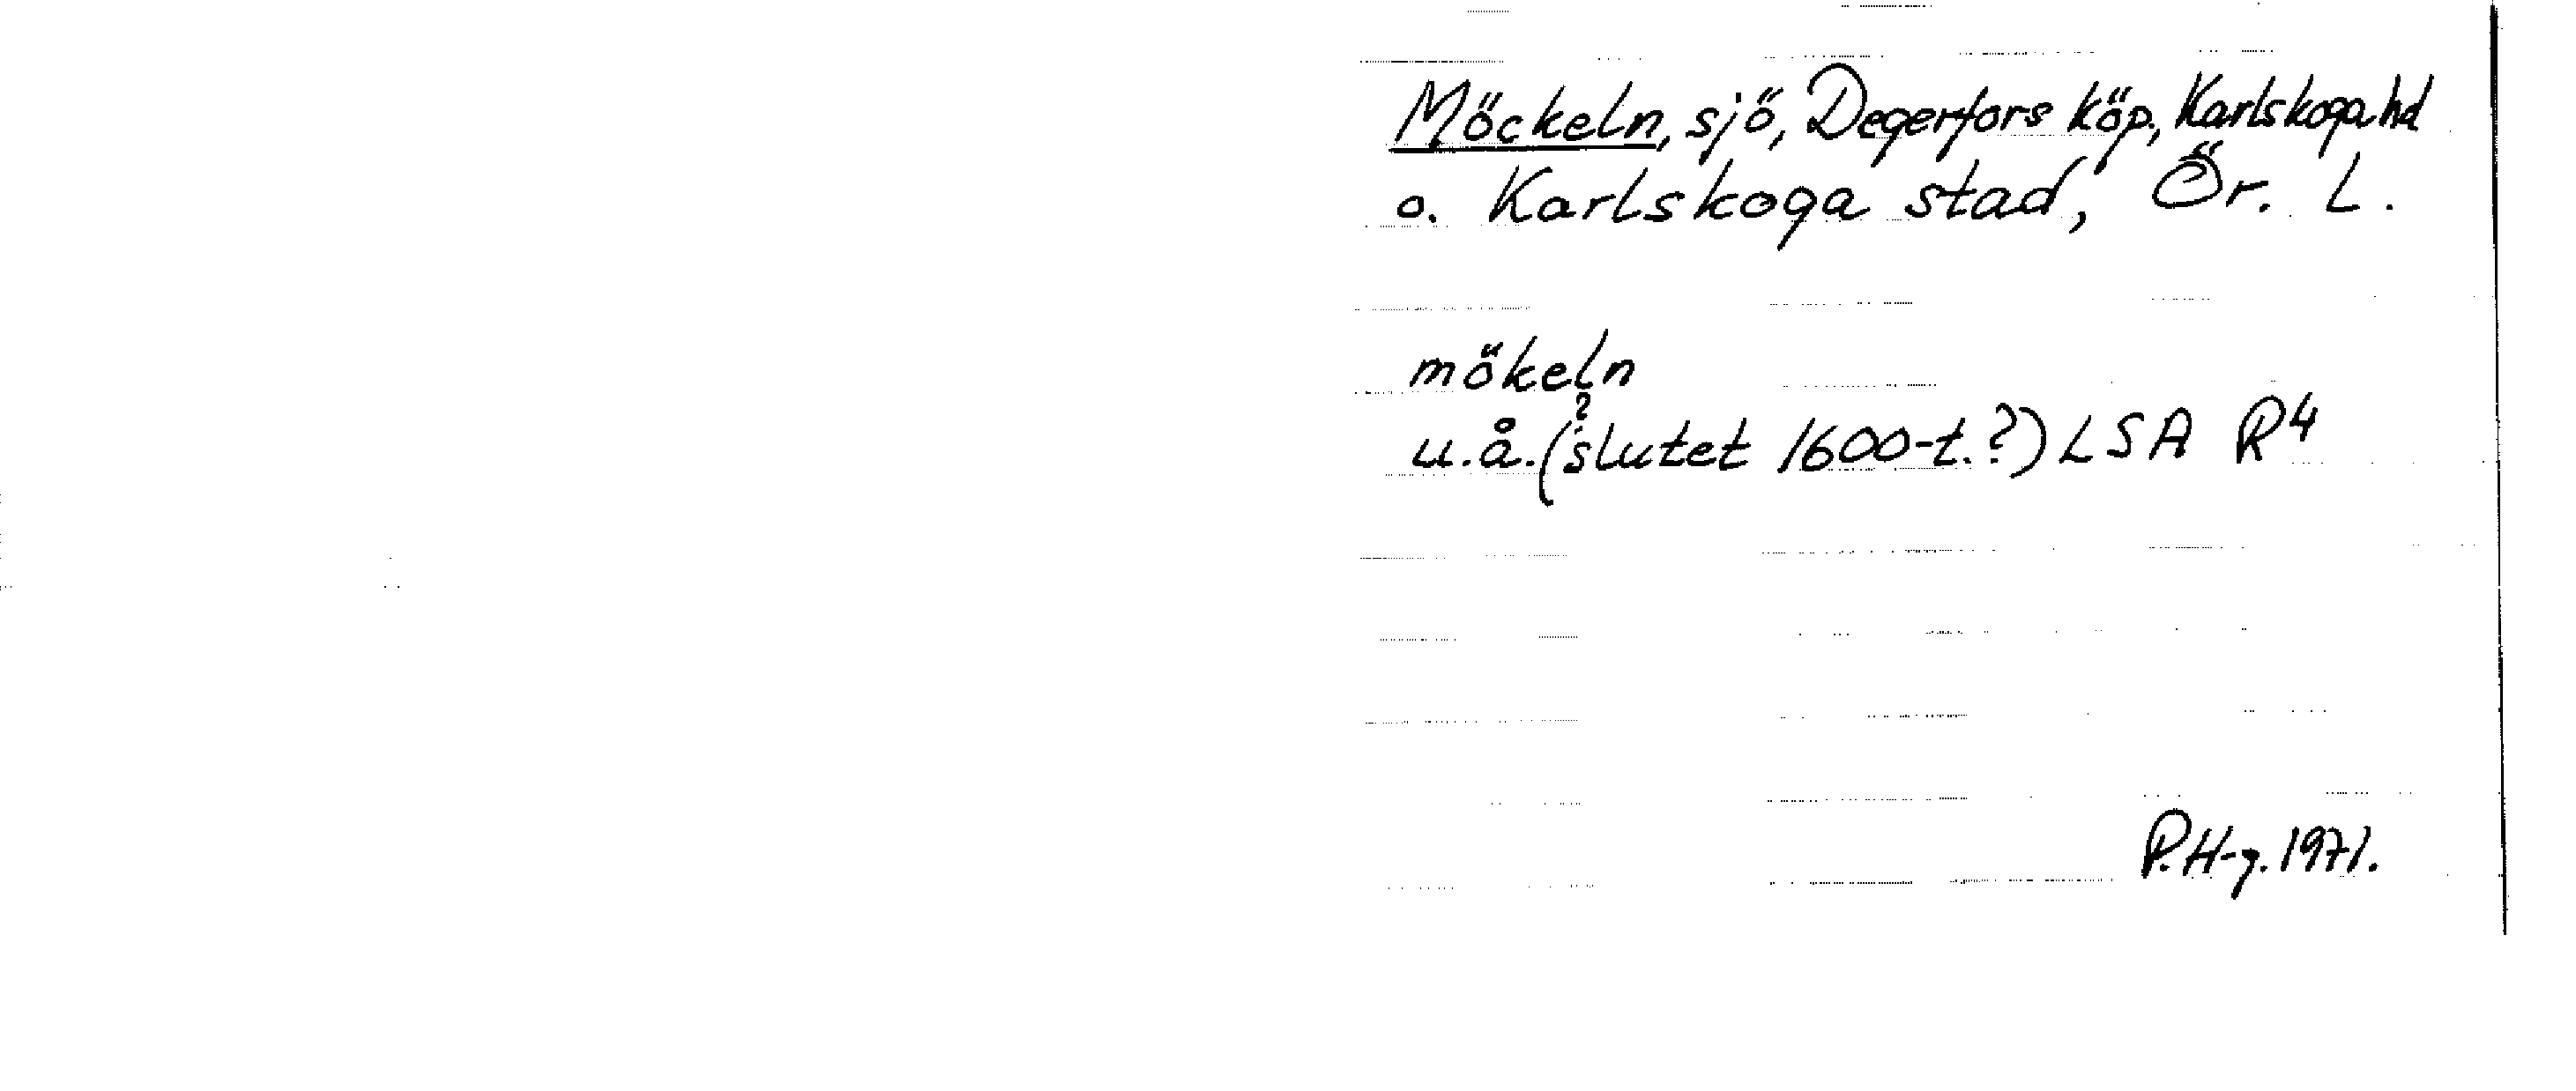 Möckeln, sjö, Degerfors köp., Karlskoga hd
o. Karlskoga stad, Ör. L.
mökeln
u.å. (?slutet 1600-t.?) LSA R4
P.H-g. 1971.